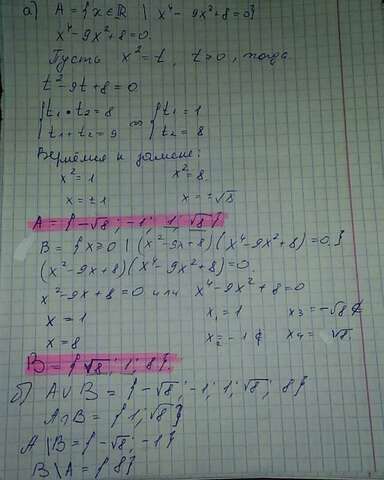 а) A = { x ∈ ℝ | x⁴ - 9x² + 8 = 0}
x⁴ - 9x² + 8 = 0.
Пусть x² = t, t>0, тогда
t² - 9t + 8 = 0
{ t₁ · t₂ = 8 ⇔ { t₁ = 1
{ t₁ + t₂ = 9 { t₂ = 8
Вернёмся к замене:
x² = 1 x² = 8
x = ±1 x = ±√8
A = {-√8; -1; 1; √8}
B = { x ≥ 0 | (x² - 9x + 8)(x⁴ - 9x² + 8) = 0}
(x² - 9x + 8)(x⁴ - 9x² + 8) = 0
x² - 9x + 8 = 0 или x⁴ - 9x² + 8 = 0
x = 1 x₁ = 1 x₃ = -√8 ∉
x = 8 x₂ = -1 ∉ x₄ = √8
B = { √8; 1; 8}
б) A∪B = {-√8; -1; 1; √8; 8}
A∩B = {1; √8}
A\B = {-√8; -1}
B\A = {8}